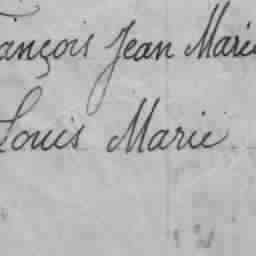 François Jean Marie
Louis Marie